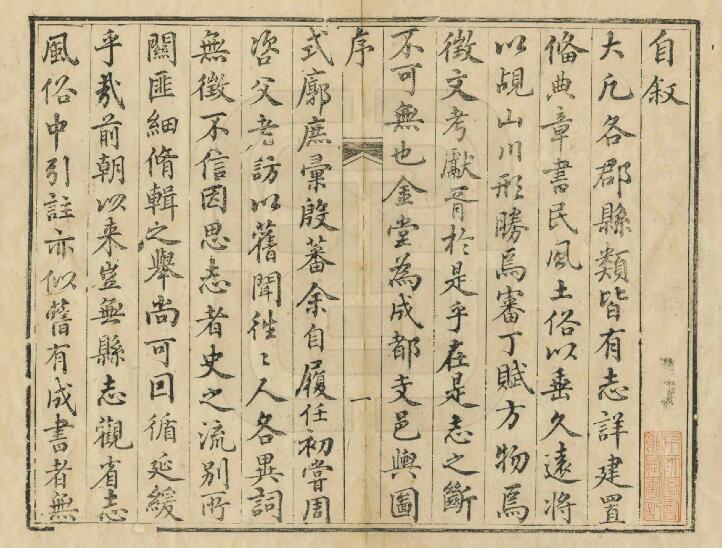 自叙
大凡各郡縣類皆有志詳建置
偹典章書民風土俗以垂久遠將
以覘山川形勝焉審丁賦方物焉
徵文考獻胥於是乎在是志之斷
不可無也金堂為成都支邑輿圖
序
一
式廓庶彚殷蕃余自履任初嘗周
咨父老訪以舊聞徃〻人各異詞
無徵不信因思志者史之流別所
關匪細脩輯之舉尚可因循延緩
乎哉前朝以来豈無縣志觀省志
風俗中引註亦似舊有成書者無